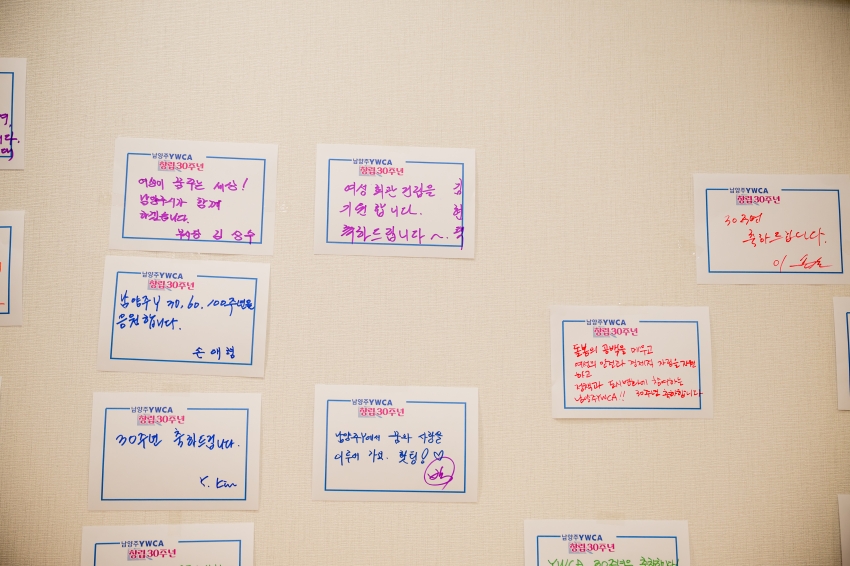 남양주YWCA
창립30주년
여성이 꿈꾸는 세상!
남양주시가 함께
하겠습니다.
부시장 김상수
남양주YWCA
창립30주년
여성 회관 건립을
기원합니다.
축하드립니다~.
김현택
남양주YWCA
창립30주년
30주년
축하드립니다.
이
남양주YWCA
창립30주년
남양주Y 30, 60, 100주년을
응원합니다.
손애형
남양주YWCA
창립30주년
돌봄의 공백을 메우고
여성의 안전과 경제적 자립을 지원
하고
정책과 도시변화에 참여하는
남양주YWCA!! 30주년 축하합니다
남양주YWCA
창립30주년
30주년 축하드립니다.
Y. Kim
남양주YWCA
창립30주년
남양주Y에서 꿈과 사랑을
이루어 가요. 홧팅!♡
남양주YWCA
창립30주년
남양주YWCA
창립30주년
YWCA 30주년을 축하합니다